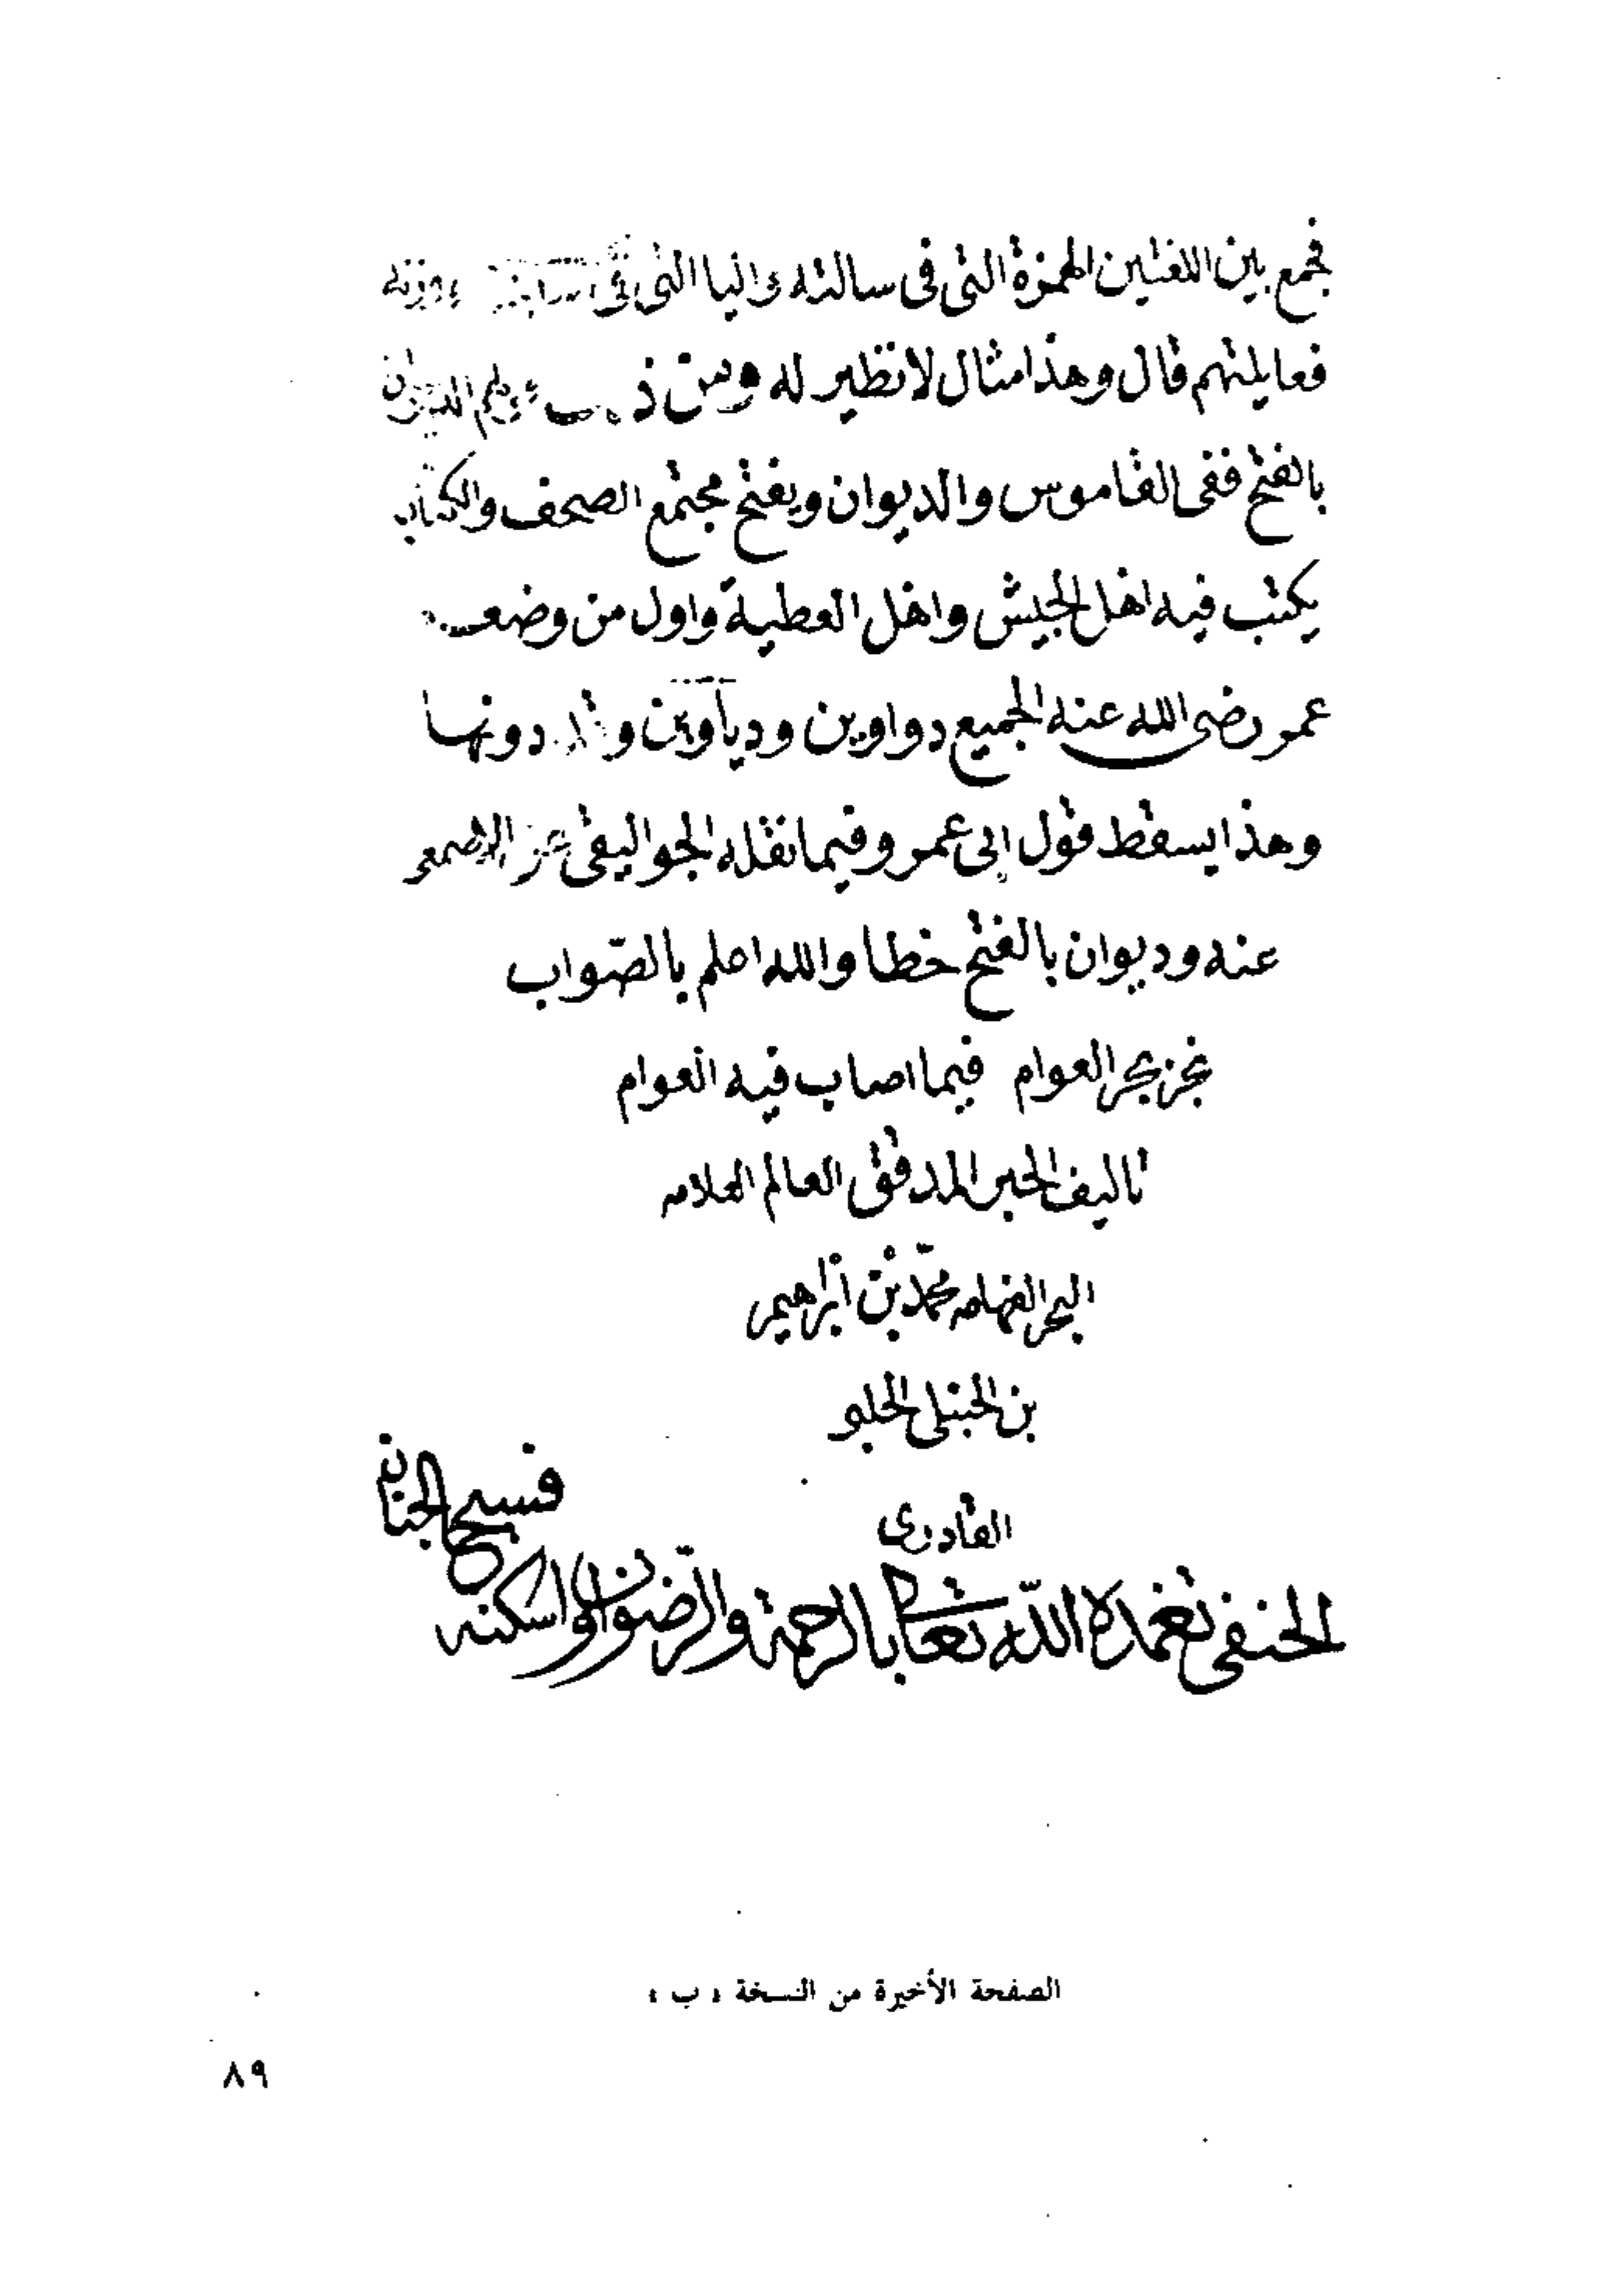 فجمع بين اللغتين الهمزة التى فى سالته واليا التى فى ووزنه
فعايلتهم قال وهذا مثال لا نظير له ومن قولهم الديوان
بالفتح ففى القاموس والديوان ويفتح مجتمع الصحف والكتاب
يكتب فيه اهل الجيش واهل العطية واول من وضعه
عمر رضى الله عنه الجميع دواوين ودياوين وقد دونها
وهذا يسقط قول ابى عمرو فيما نقله الجواليقى عن الاصمعى
عنه وديوان بالفتح خطا والله اعلم بالصّواب
نجز بحر العوام فيما اصاب فيه العوام
تاليف الحبر المدقق العالم العلامه
البحر الفهامه محمّد بن ابراهيم
بن الحنبلى الحلبى
القادرى
الحنفى تغمده اللّه تعالى بالرحمة والرّضوان واسكنه
فسيح الجنان
الصفحة الأخيرة من النسخة « ب »
٨٩